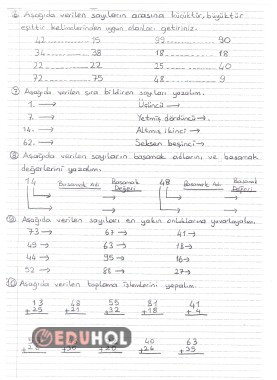 ⑥ Aşağıda verilen sayıların arasına küçüktür, büyüktür
eşittir kelimelerinden uygun olanları getiriniz.
42 ......... 15 99 ......... 90
34 ......... 38 18 ......... 18
22 ......... 22 25 ......... 40
72 ......... 75 48 ......... 9
⑦ Aşağıda verilen sıra bildiren sayıları yazalım.
1. → Üçüncü →
7. → Yetmiş dördüncü →
14. → Altmış ikinci →
62. → Seksen beşinci →
⑧ Aşağıda verilen sayıların basamak adlarını ve basamak
değerlerini yazalım.
14 Basamak Adı Basamak Değeri 48 Basamak Adı Basamak Değeri
⑨ Aşağıda verilen sayıları en yakın onluklarına yuvarlayalım.
73 → 67 → 41 →
49 → 63 → 18 →
44 → 95 → 16 →
52 → 88 → 27 →
⑩ Aşağıda verilen toplama işlemlerini yapalım.
13 48 55 81 41
+25 +21 +32 +18 +4
EDUHOL
40 63
+26 +35